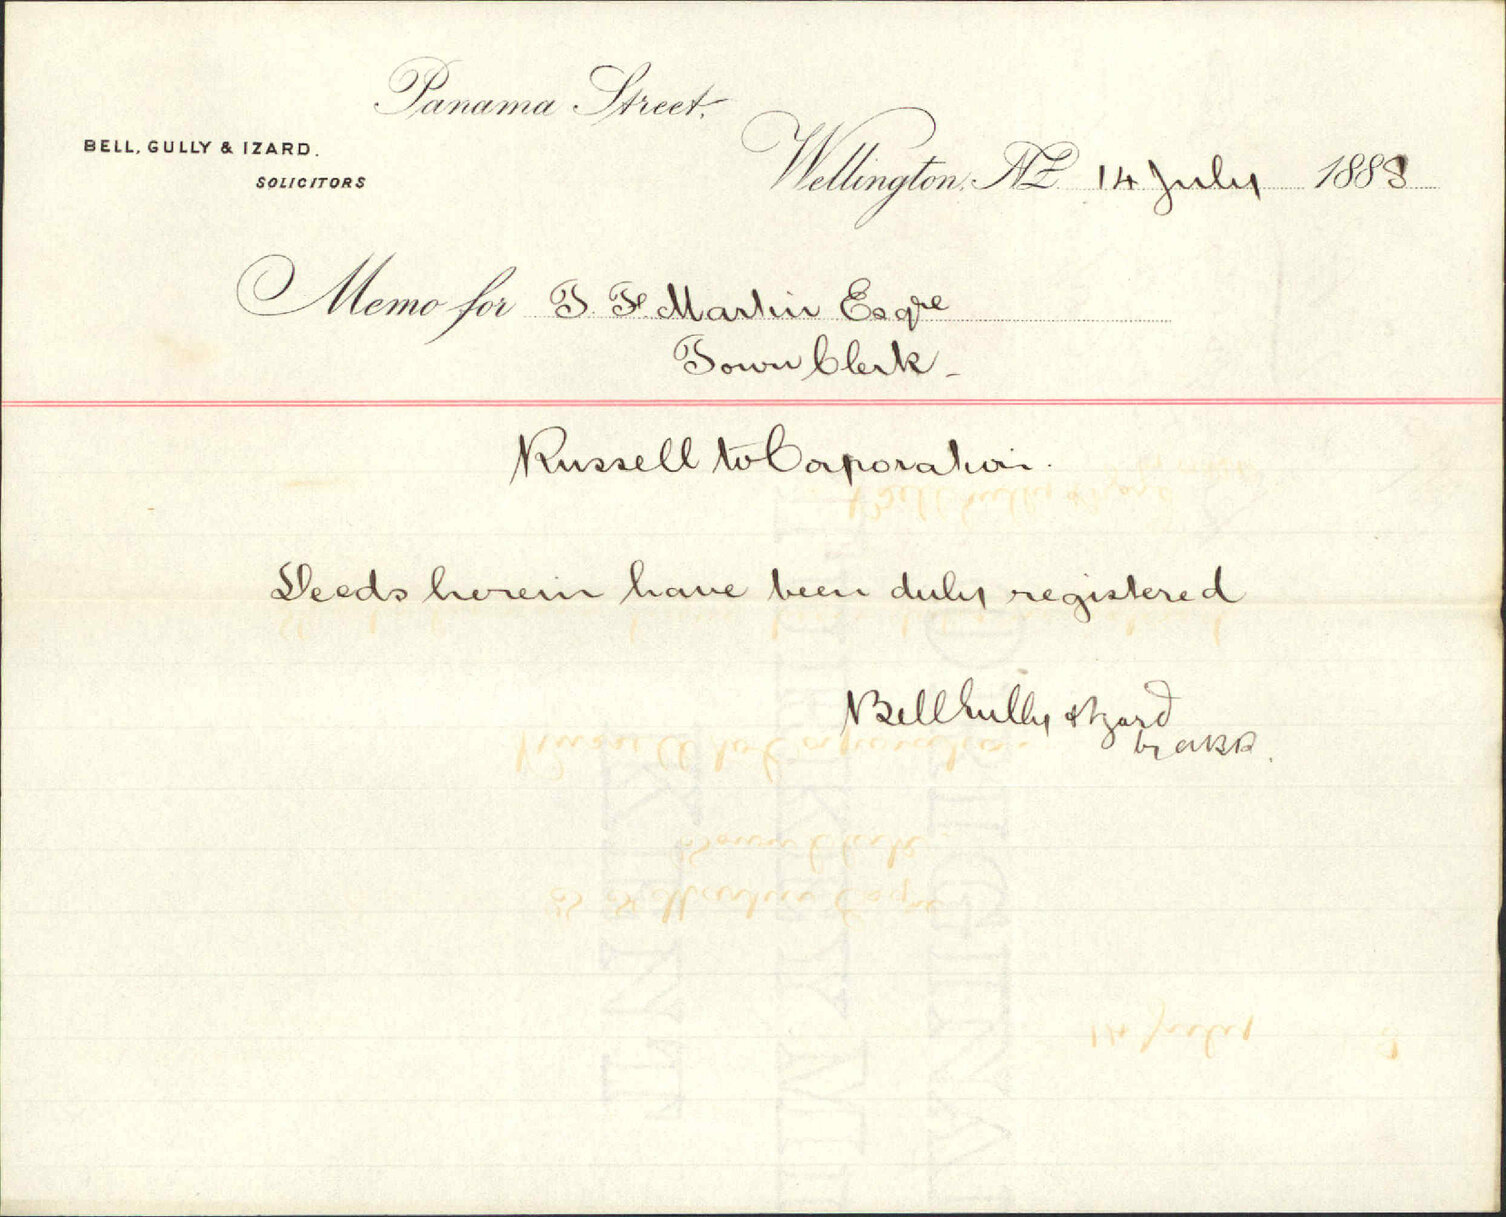 Panama Street.
BELL, GULLY & IZARD.
SOLICITORS
Wellington, NZ 14 July 1888
Memo for T. F. Martin Esqre
Town Clerk
Russell to Corporation.
Deeds herein have been duly registered
Bell Gully & Izard
by